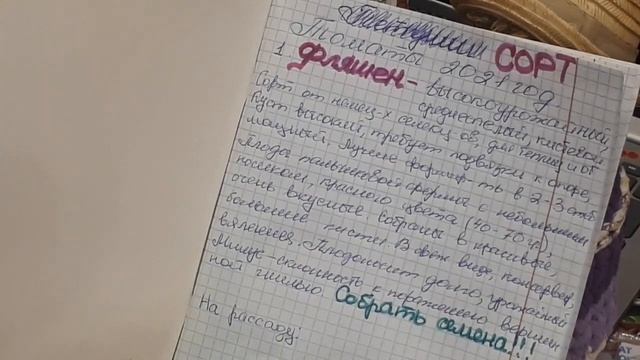 СОРТ
Томаты 2021 год
1. Фляшен - высокоурожайный,
среднеспелый, кистевой
Сорт от немец-х селекц-ов, для теплиц и ОГ
Куст высокий, требует подвязки к опоре,
мощный, лучше формир-ть в 2-3 ств.
Плоды пальчиковой формы с небольшим
носиком, красного цвета (40-70 гр),
очень вкусные. Собраны в красивые,
большие кисти. В свеж виде, консервир,
вяления. Плодоносит долго, урожайный
Минус - склонность к поражению вершин
ной гнилью. Собрать семена!!!
На рассаду: